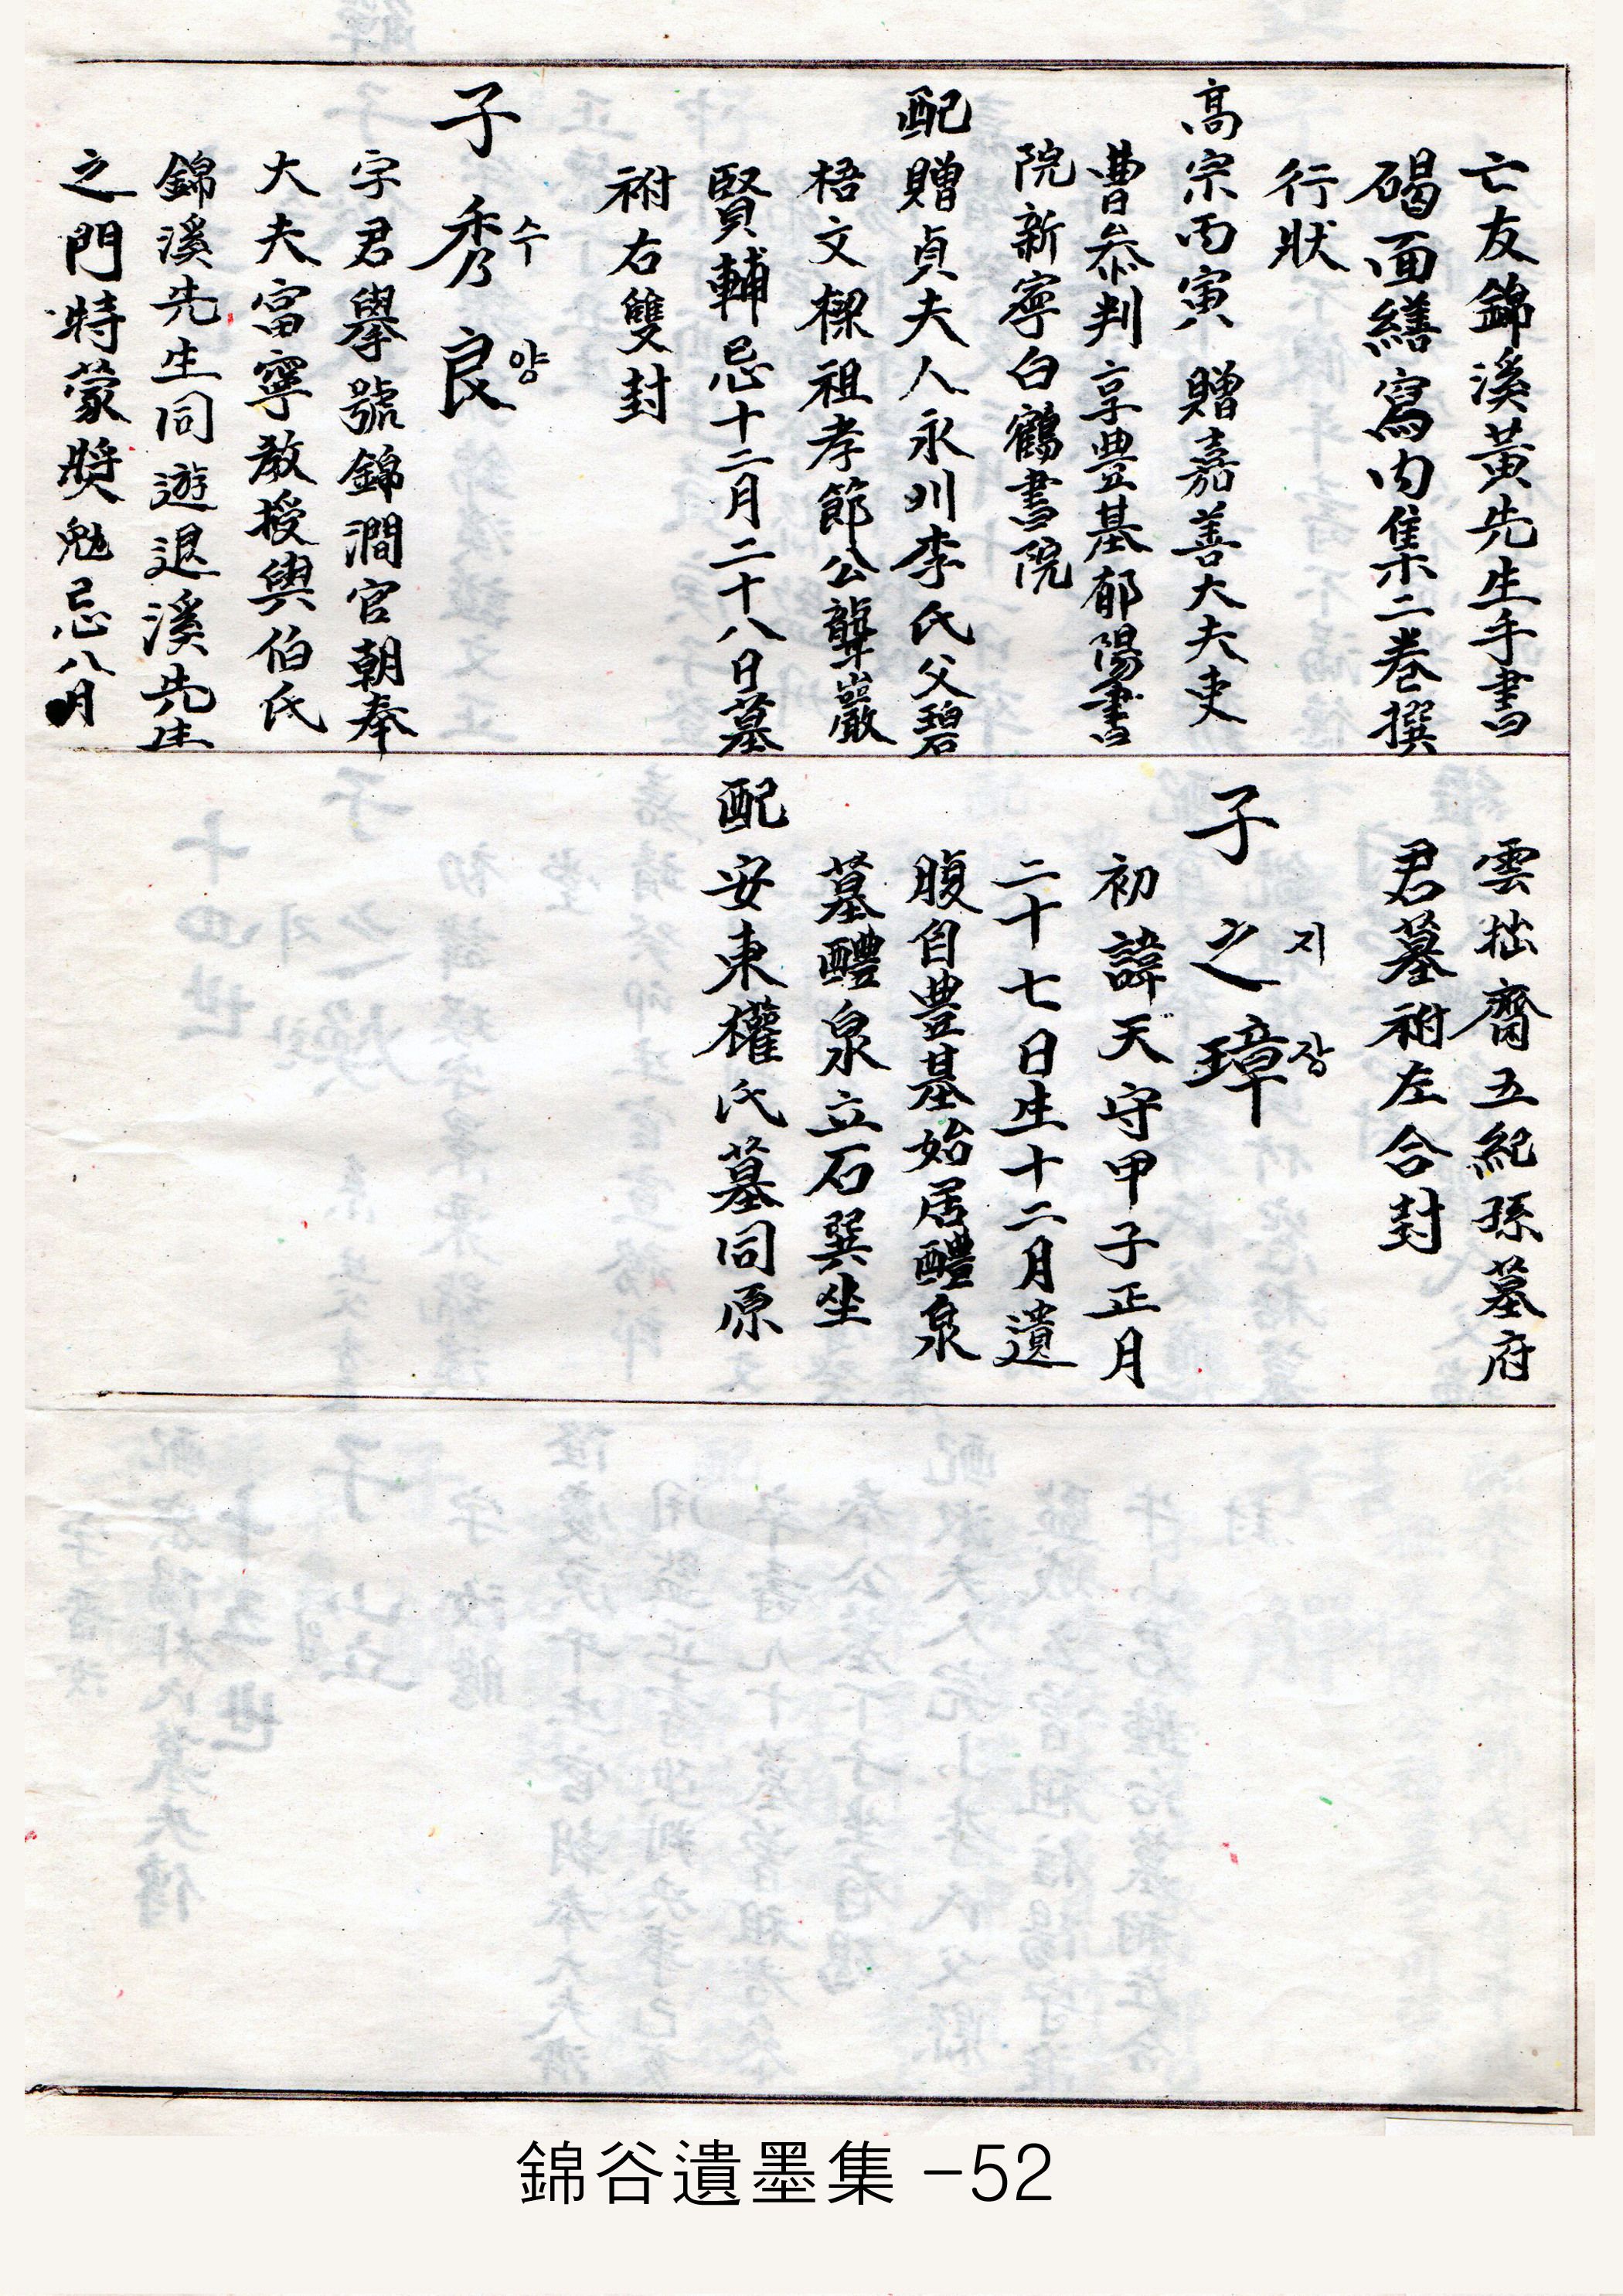 亡友錦溪黃先生手書
碣面繕寫內集二卷撰
行狀
高宗丙寅 贈嘉善大夫吏
曹叅判享豊基郁陽書
院新寧白鶴書院
配贈貞夫人永川李氏父碧
梧文樑祖孝節公聾巖
賢輔忌十二月二十八日墓
祔右雙封
子 秀수 良양
字君擧號錦澗官朝奉
大夫富寧敎授與伯氏
錦溪先生同遊退溪先生
之門特蒙奬勉忌八月
雲拙齋五紀孫墓府
君墓祔左合封
子 之지 璋장
初諱天守甲子正月
二十七日生十二月遺
腹自豊基始居醴泉
墓醴泉立石巽坐
配安東權氏墓同原
錦谷遺墨集 -52